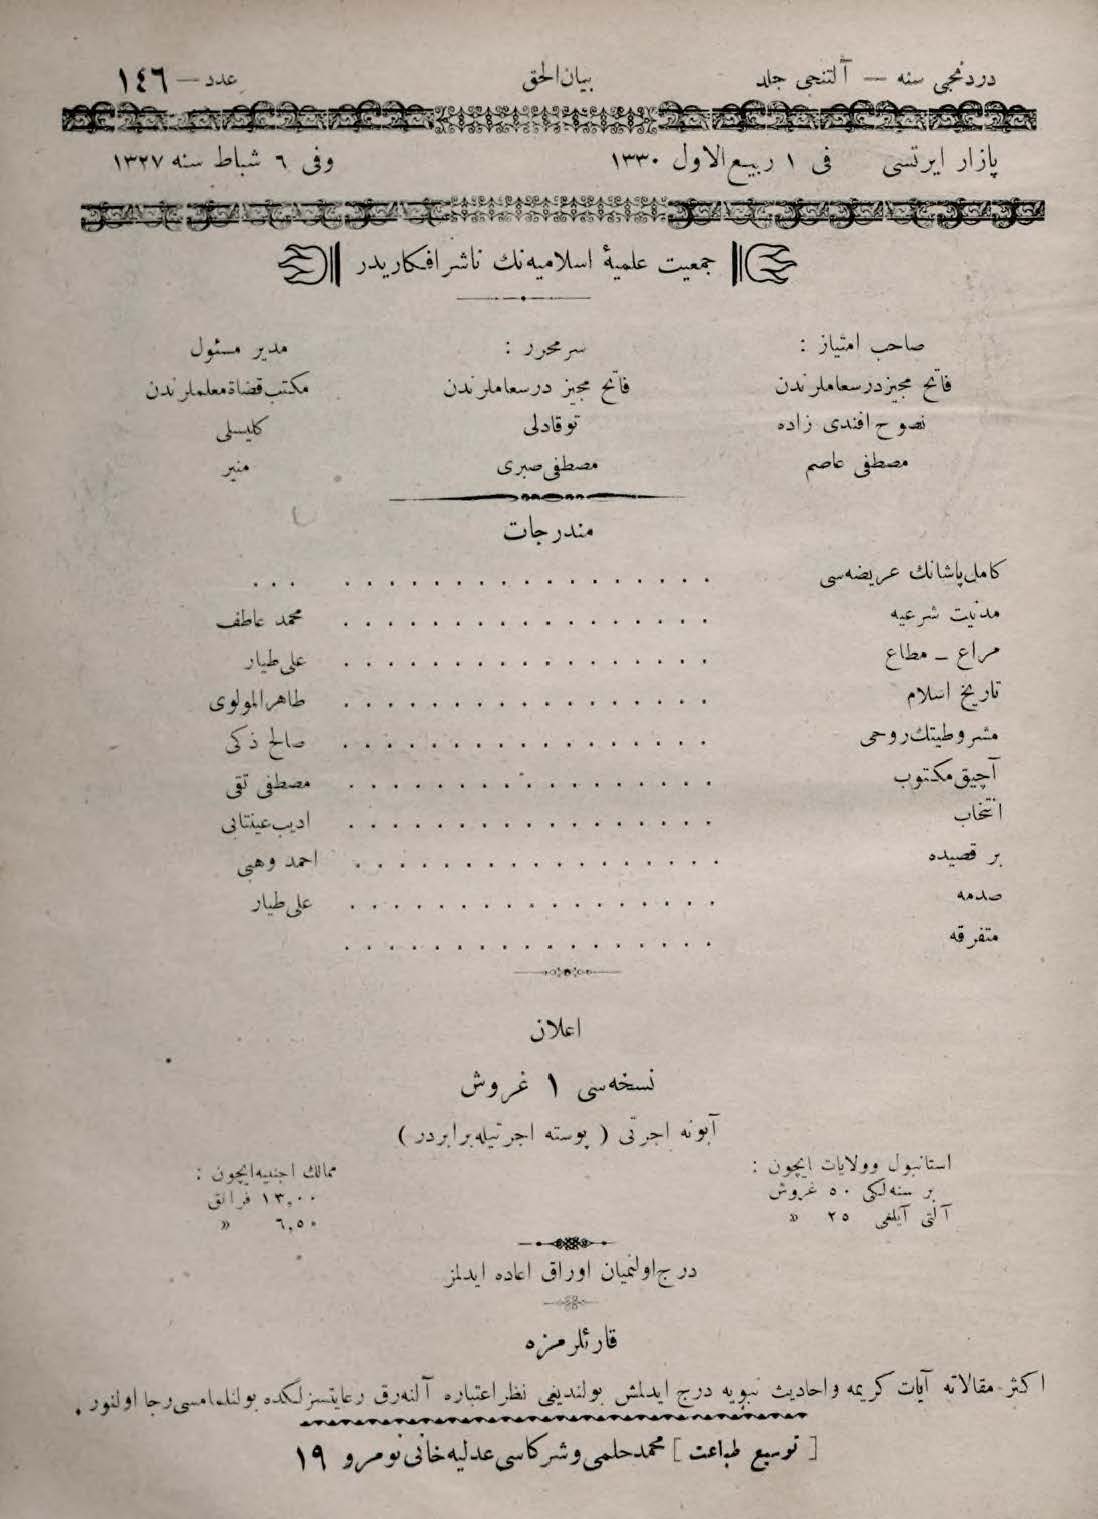 دردنجی سنه — آلتنجی جلد بیان الحق عدد — ١٤٦
پازار ایرتسی فی ١ ربیع الاول ١٣٣٠ وفی ٦ شباط سنه ١٣٢٧
جمعیت علمیهٔ اسلامیه‌نك ناشر افکاریدر
صاحب امتیاز : سرمحرر : مدیر مسئول
فاتح مجیز درسعاملرندن فاتح مجیز درسعاملرندن مکتب قضاة معلملرندن
نصوح افندی زاده توقادلی کلیسلی
مصطفی عاصم مصطفی صبری منیر
مندرجات
کامل پاشانك عریضه‌سی . . .
مدنیت شرعیه محمد عاطف
مراع ـ مطاع علی طیار
تاریخ اسلام طاهر المولوی
مشروطیتك روحی صالح ذکی
آچیق مکتوب مصطفی تقی
انتخاب ادیب عینتابی
بر قصیده احمد وهبی
صدمه علی طیار
متفرقه
اعلان
نسخه‌سی ١ غروش
آبونه اجرتی ( پوسته اجرتیله برابردر )
استانبول وولایات ایچون : ممالك اجنبیه ایچون :
بر سنه‌لکی ٥٠ غروش ١٣,٠٠ فرانق
آلتی آیلغی ٢٥ » ٦,٥٠ »
درج اولنمیان اوراق اعاده ایدلمز
قارئلرمزه
اکثر مقالاته آیات کریمه واحادیث نبویه درج ایدلمش بولندیغی نظر اعتباره آلنه‌رق رعایتسزلکده بولنلمامسی رجا اولنور .
[ توسیع طباعت ] محمد حلمی و شرکاسی عدلیه خانی نومرو ١٩